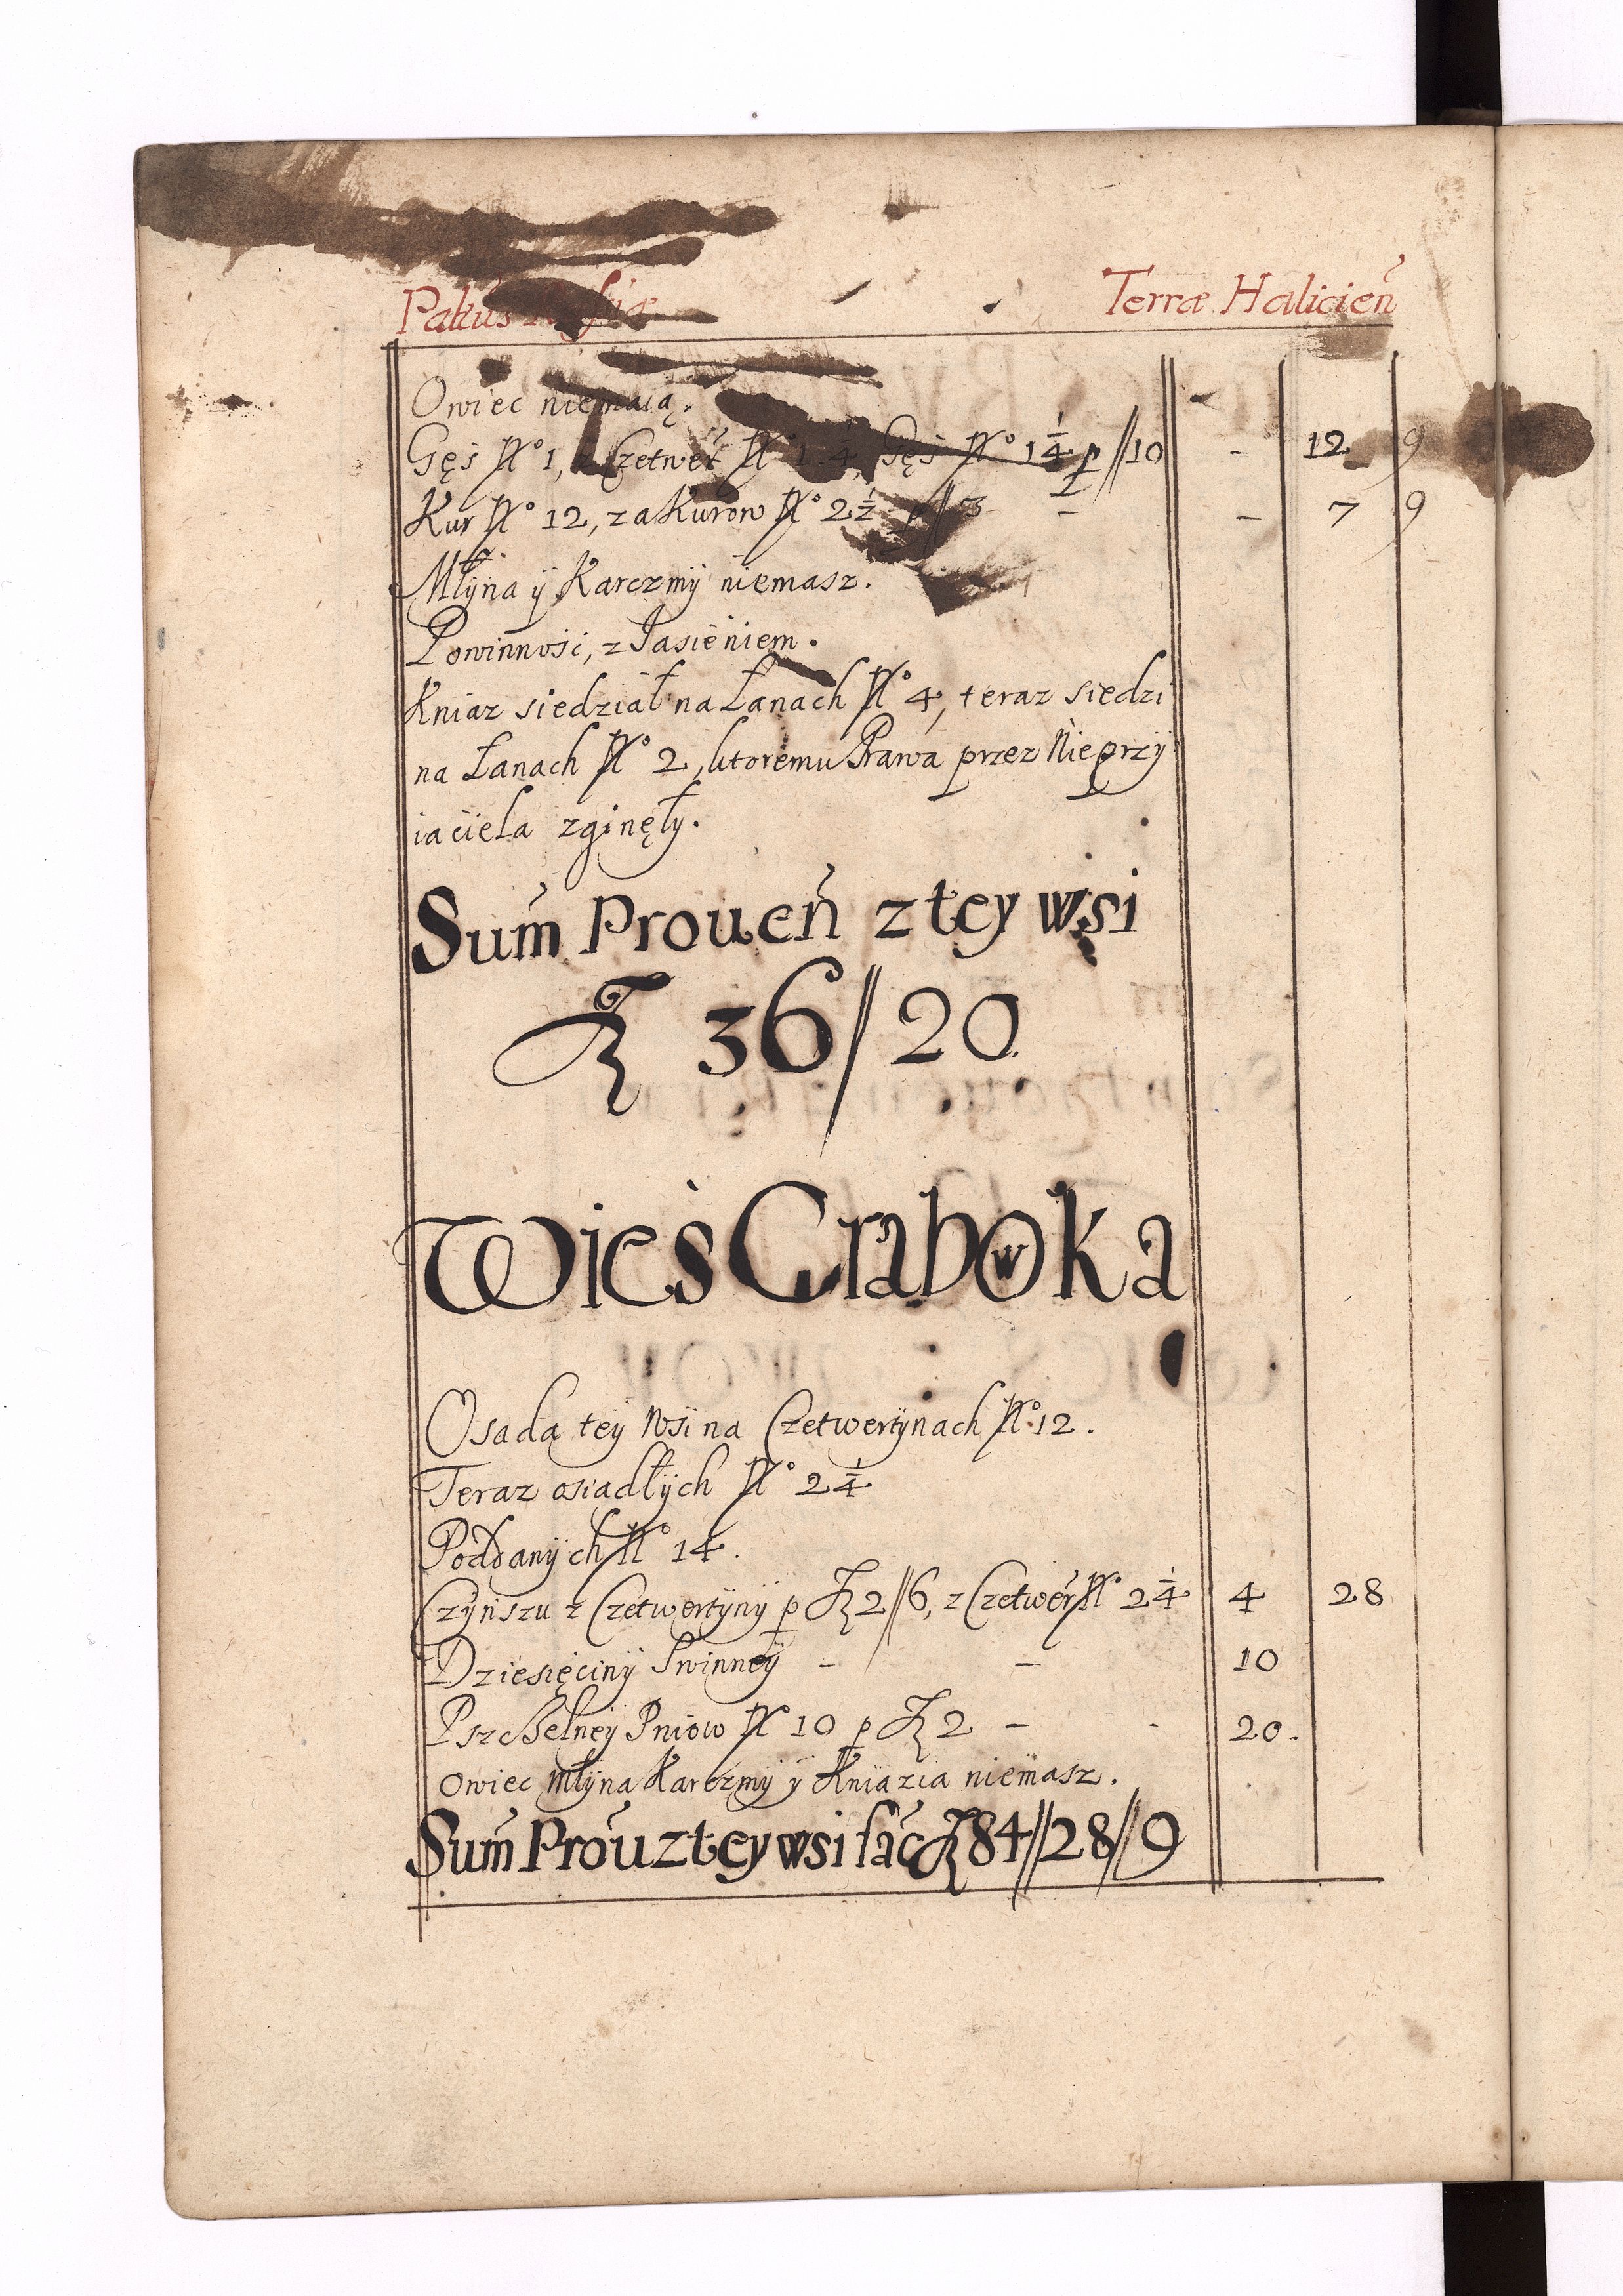 Palńs Terræ Halicień
Owiec niemaią.
Gęś No 1, z Czetwer No 1 1/4, Gęś No 1 1/4 p//10 - 12 9
Kur No 12, za Kurow No 2 1/2 p//3 - - 7 9
Młÿna ÿ Karczmÿ niemasz.
Powinnośi, z Jasieniem.
Kniaz siedział na Łanach No 4, teraz siedzi
na Łanach No 2, ktoremu Prawa przez Nieprzÿ
iaciela zginęły.
Sum̃ Proueń z tey wsi
Fl 36//20
Wieś Grabowka
Osada teÿ Wsi na Czetwertÿnach No 12.
Teraz osiadłÿch No 2 1/4
Poddanÿch No 14.
Czÿnszu z Czetwertÿnÿ p Fl 2//6, z Czetwer No 2 1/4 4 28
Dziesięcinÿ Swinneÿ - - 10
Pszczelneÿ Pniow No 10 p Fl 2 - - 20.
Owiec młÿna Karczmÿ ÿ Kniazia niemasz.
Sum̃ Prou z tey wsi fac Fl 84//28//9